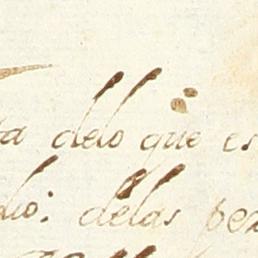 ta delo que es
dio: delas pe